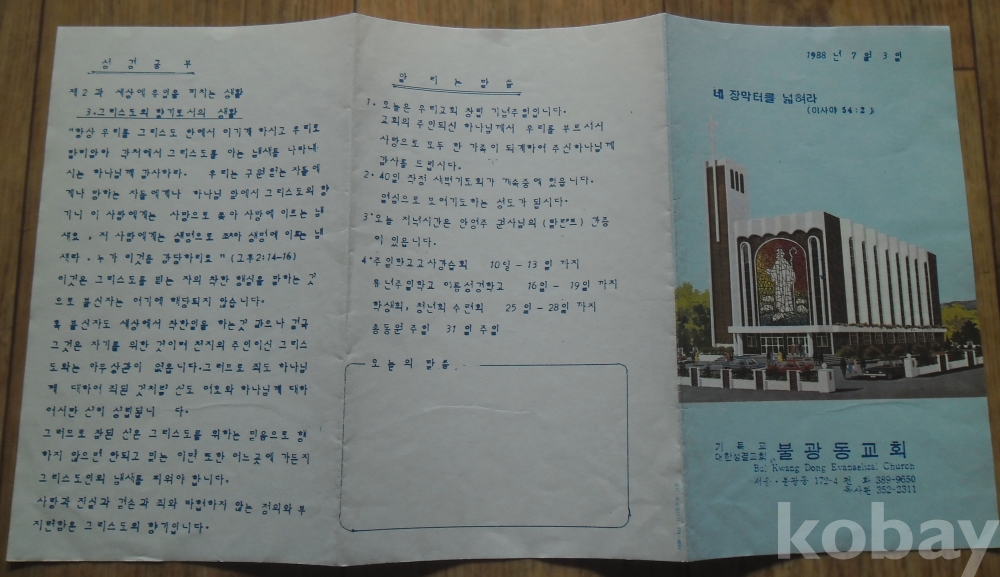 성경공부
제2과 세상에 유익을 끼치는 생활
3. 그리스도의 향기로서의 생활
"항상 우리를 그리스도 안에서 이기게 하시고 우리로
말미암아 각처에서 그리스도를 아는 냄새를 나타내
시는 하나님께 감사하라. 우리는 구원 얻는 자들에
게나 망하는 자들에게나 하나님 앞에서 그리스도의 향
기니 이 사람에게는 사망으로 좇아 사망에 이르는 냄
새요, 저 사람에게는 생명으로 좇아 생명에 이르는 냄
새라. 누가 이것을 감당하리요" (고후2:14-16)
이것은 그리스도를 믿는 자의 착한 행실을 말하는 것
으로 불신자는 여기에 해당되지 않습니다.
혹 불신자도 세상에서 착한일을 하는것 같으나 결국
그것은 자기를 위한 것이며 천지의 주인이신 그리스
도와는 아무상관이 없읍니다. 그러므로 죄도 하나님
께 대하여 죄된 것처럼 선도 여호와 하나님께 대하
여서만 선이 성립됩니 다.
그러므로 참된 선은 그리스도를 위하는 믿음으로 행
하지 않으면 안되고 믿는 이면 또한 어느곳에 가든지
그리스도인의 냄새를 피워야 합니다.
사랑과 진실과 겸손과 죄와 타협하지 않는 정의와 부
지런함은 그리스도의 향기입니다.
알리는 말씀
1. 오늘은 우리교회 창립 기념주일입니다.
교회의 주인되신 하나님께서 우리를 부르시사
사랑으로 모두 한 가족이 되게하여 주신하나님께
감사를 드립시다.
2. 40일 작정 새벽기도회가 계속중에 있읍니다.
열심으로 모여기도하는 성도가 됩시다.
3. 오늘 저녁시간은 안영주 권사님의 (탈란트) 간증
이 있읍니다.
4. 주일학교교사강습회 10일-13일 까지
유년주일학교 여름성경학교 16일-19일 까지
학생회, 청년회 수련회 25일-28일 까지
총동원 주일 31일 주일
오늘의 말씀
1988년 7월 3일
네 장막터를 넓혀라
(이사야 54:2)
기독교
대한성결교회 불광동교회
Bul Kwang Dong Evangelical Church
서울·불광동 172-4 전화 389-9650
목사관 352-2311
kobay